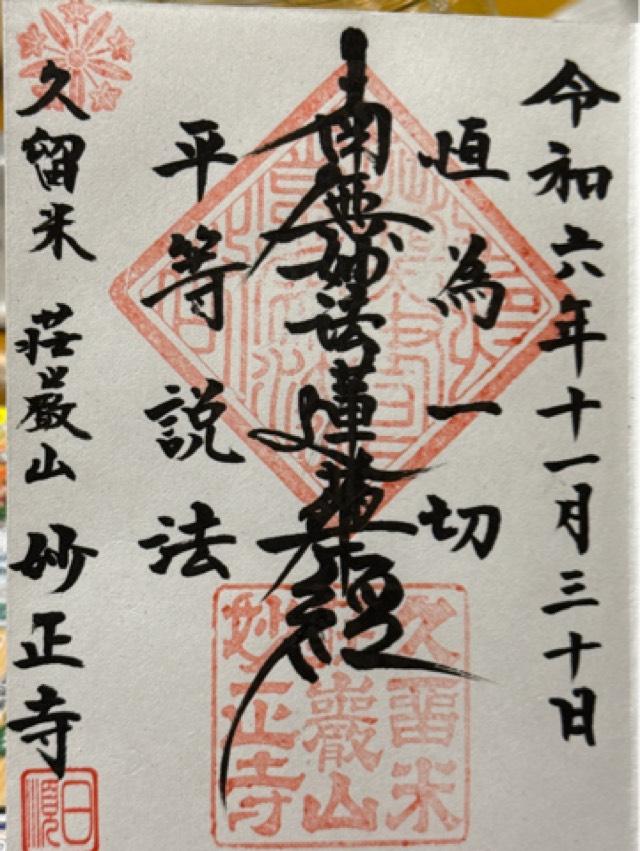 令和六年十一月三十日
恒為一切
南無妙法蓮華経
平等説法
久留米 荘巌山 妙正寺
久留米
荘巌山
妙正寺